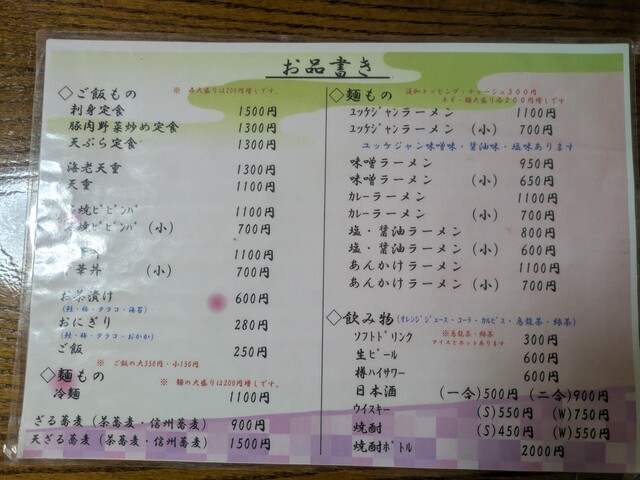 お品書き
◇ご飯もの
※ 各大盛りは200円増しです。
刺身定食 1500円
豚肉野菜炒め定食 1300円
天ぷら定食 1300円
海老天重 1300円
天重 1100円
焼ビビンバ 1100円
焼ビビンバ(小) 700円
1100円
華丼 (小) 700円
お茶漬け 600円
(鮭・梅・タラコ・海苔)
おにぎり 280円
(鮭・梅・タラコ・おかか)
ご飯 250円
※ ご飯の大350円・小150円
◇麺もの
※ 麺の大盛りは200円増しです。
冷麺 1100円
ざる蕎麦(茶蕎麦・信州蕎麦) 900円
天ざる蕎麦(茶蕎麦・信州蕎麦) 1500円
◇麺もの
追加トッピング:チャーシュ300円
ネギ・麺大盛り各200円増しです
ユッケジャンラーメン 1100円
ユッケジャンラーメン (小) 700円
ユッケジャン味噌味・醤油味・塩味あります
味噌ラーメン 950円
味噌ラーメン (小) 650円
カレーラーメン 1100円
カレーラーメン (小) 700円
塩・醤油ラーメン 800円
塩・醤油ラーメン (小) 600円
あんかけラーメン 1100円
あんかけラーメン (小) 700円
◇飲み物(オレンジジュース・コーラ・カルピス・烏龍茶・緑茶)
ソフトドリンク 300円
※烏龍茶・緑茶
アイスとホットあります
生ビール 600円
樽ハイサワー 600円
日本酒 (一合)500円 (二合)900円
ウイスキー (S)550円 (W)750円
焼酎 (S)450円 (W)550円
焼酎ボトル 2000円